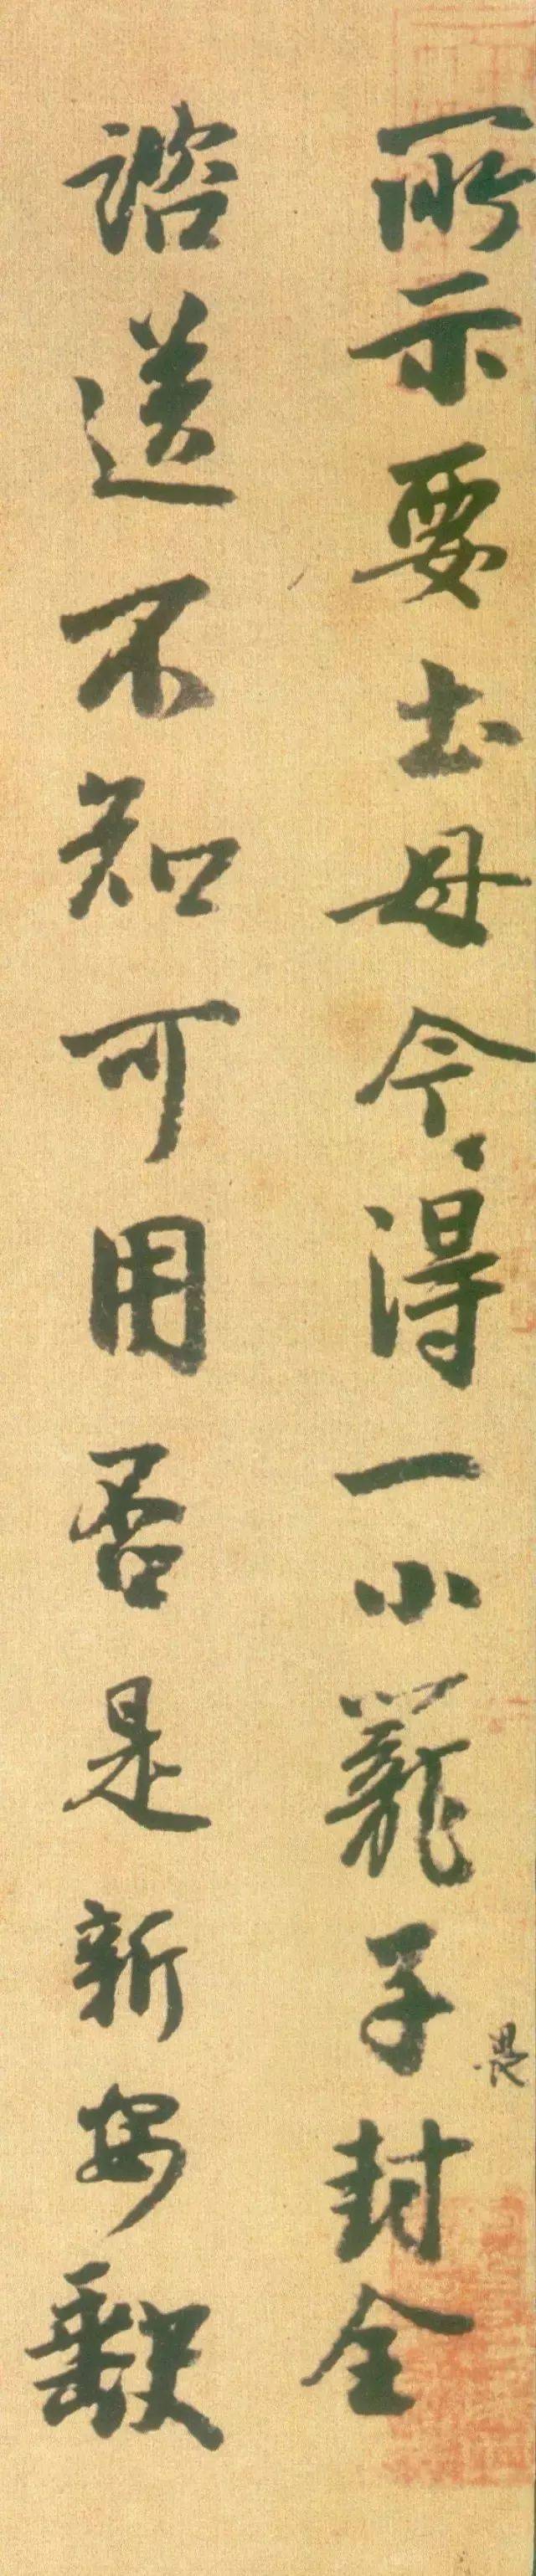 所示要土母今得一小籠子封全
諮送不知可用否是新安缺